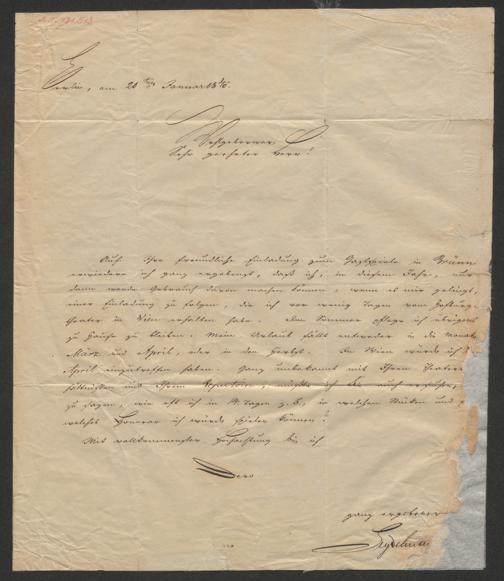 Berlin, am 20ten Januar
Wohlgeborner,
Sehr geehrter Herr!
Auf Ihre freundliche Einladung zum Gastspiele in Brünn
erwiedere ich ganz ergebenst, daß ich, in diesem Jahre, nur
dann werde Gebrauch davon machen können, wenn es mir gelingt,
einer Einladung zu folgen, die ich vor wenig Tagen vom
Theater in Wien erhalten habe. Den Sommer pflege ich übrigens
zu Hause zu bleiben. Mein Urlaub fällt entweder in die Monate
März und April, oder in den Herbst. In Wien würde ich
April eintreffen haben. Ganz unbekannt mit Ihren Theater
hältnissen und Ihrem Repertoir, müßte ich Sie auch ersuchen,
zu sagen, wie oft ich in 14 Tagen z. B., in welchen Stücken und
welches Honorar ich würde spielen können?
Mit vollkommenster Hochachtung bin ich
Dero
ganz ergebener
Seydelmann